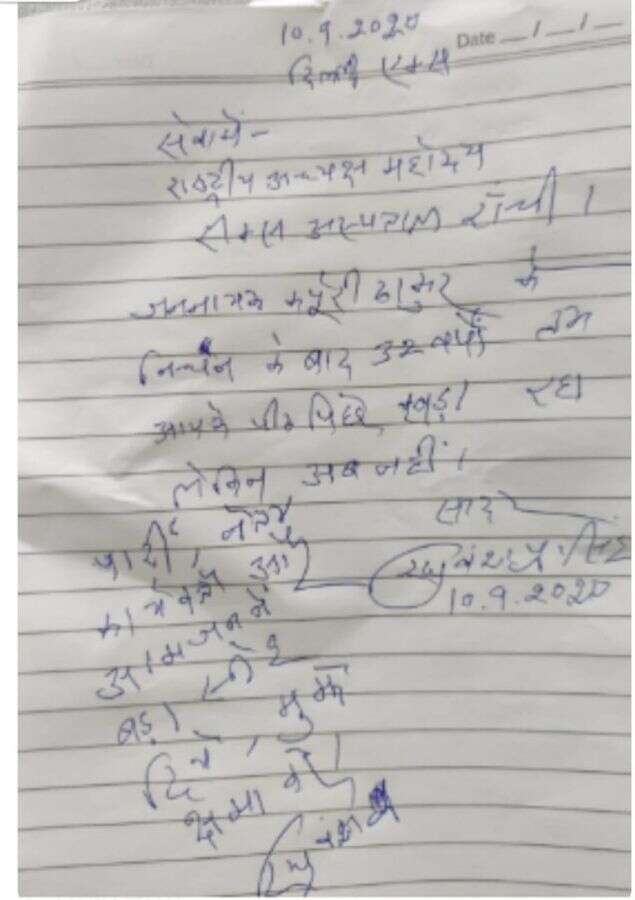 10.9.2020
Date __/__/__
दिल्ली एम्स
सेवामें-
राष्ट्रीय अध्यक्ष महोदय
रिम्स अस्पताल राँची।
जननायक कर्पूरी ठाकुर के
निधन के बाद 32 वर्षों तक
आपके पीठ पिछे खड़ा रहा
लेकिन अब नहीं।
पार्टी, नेता
कार्यकर्ता और
आमजन ने
बड़ा स्नेह
दिया, मुझे
क्षमा करें।
रघुवंश
सादर
रघुवंश प्रसाद सिंह
10.9.2020